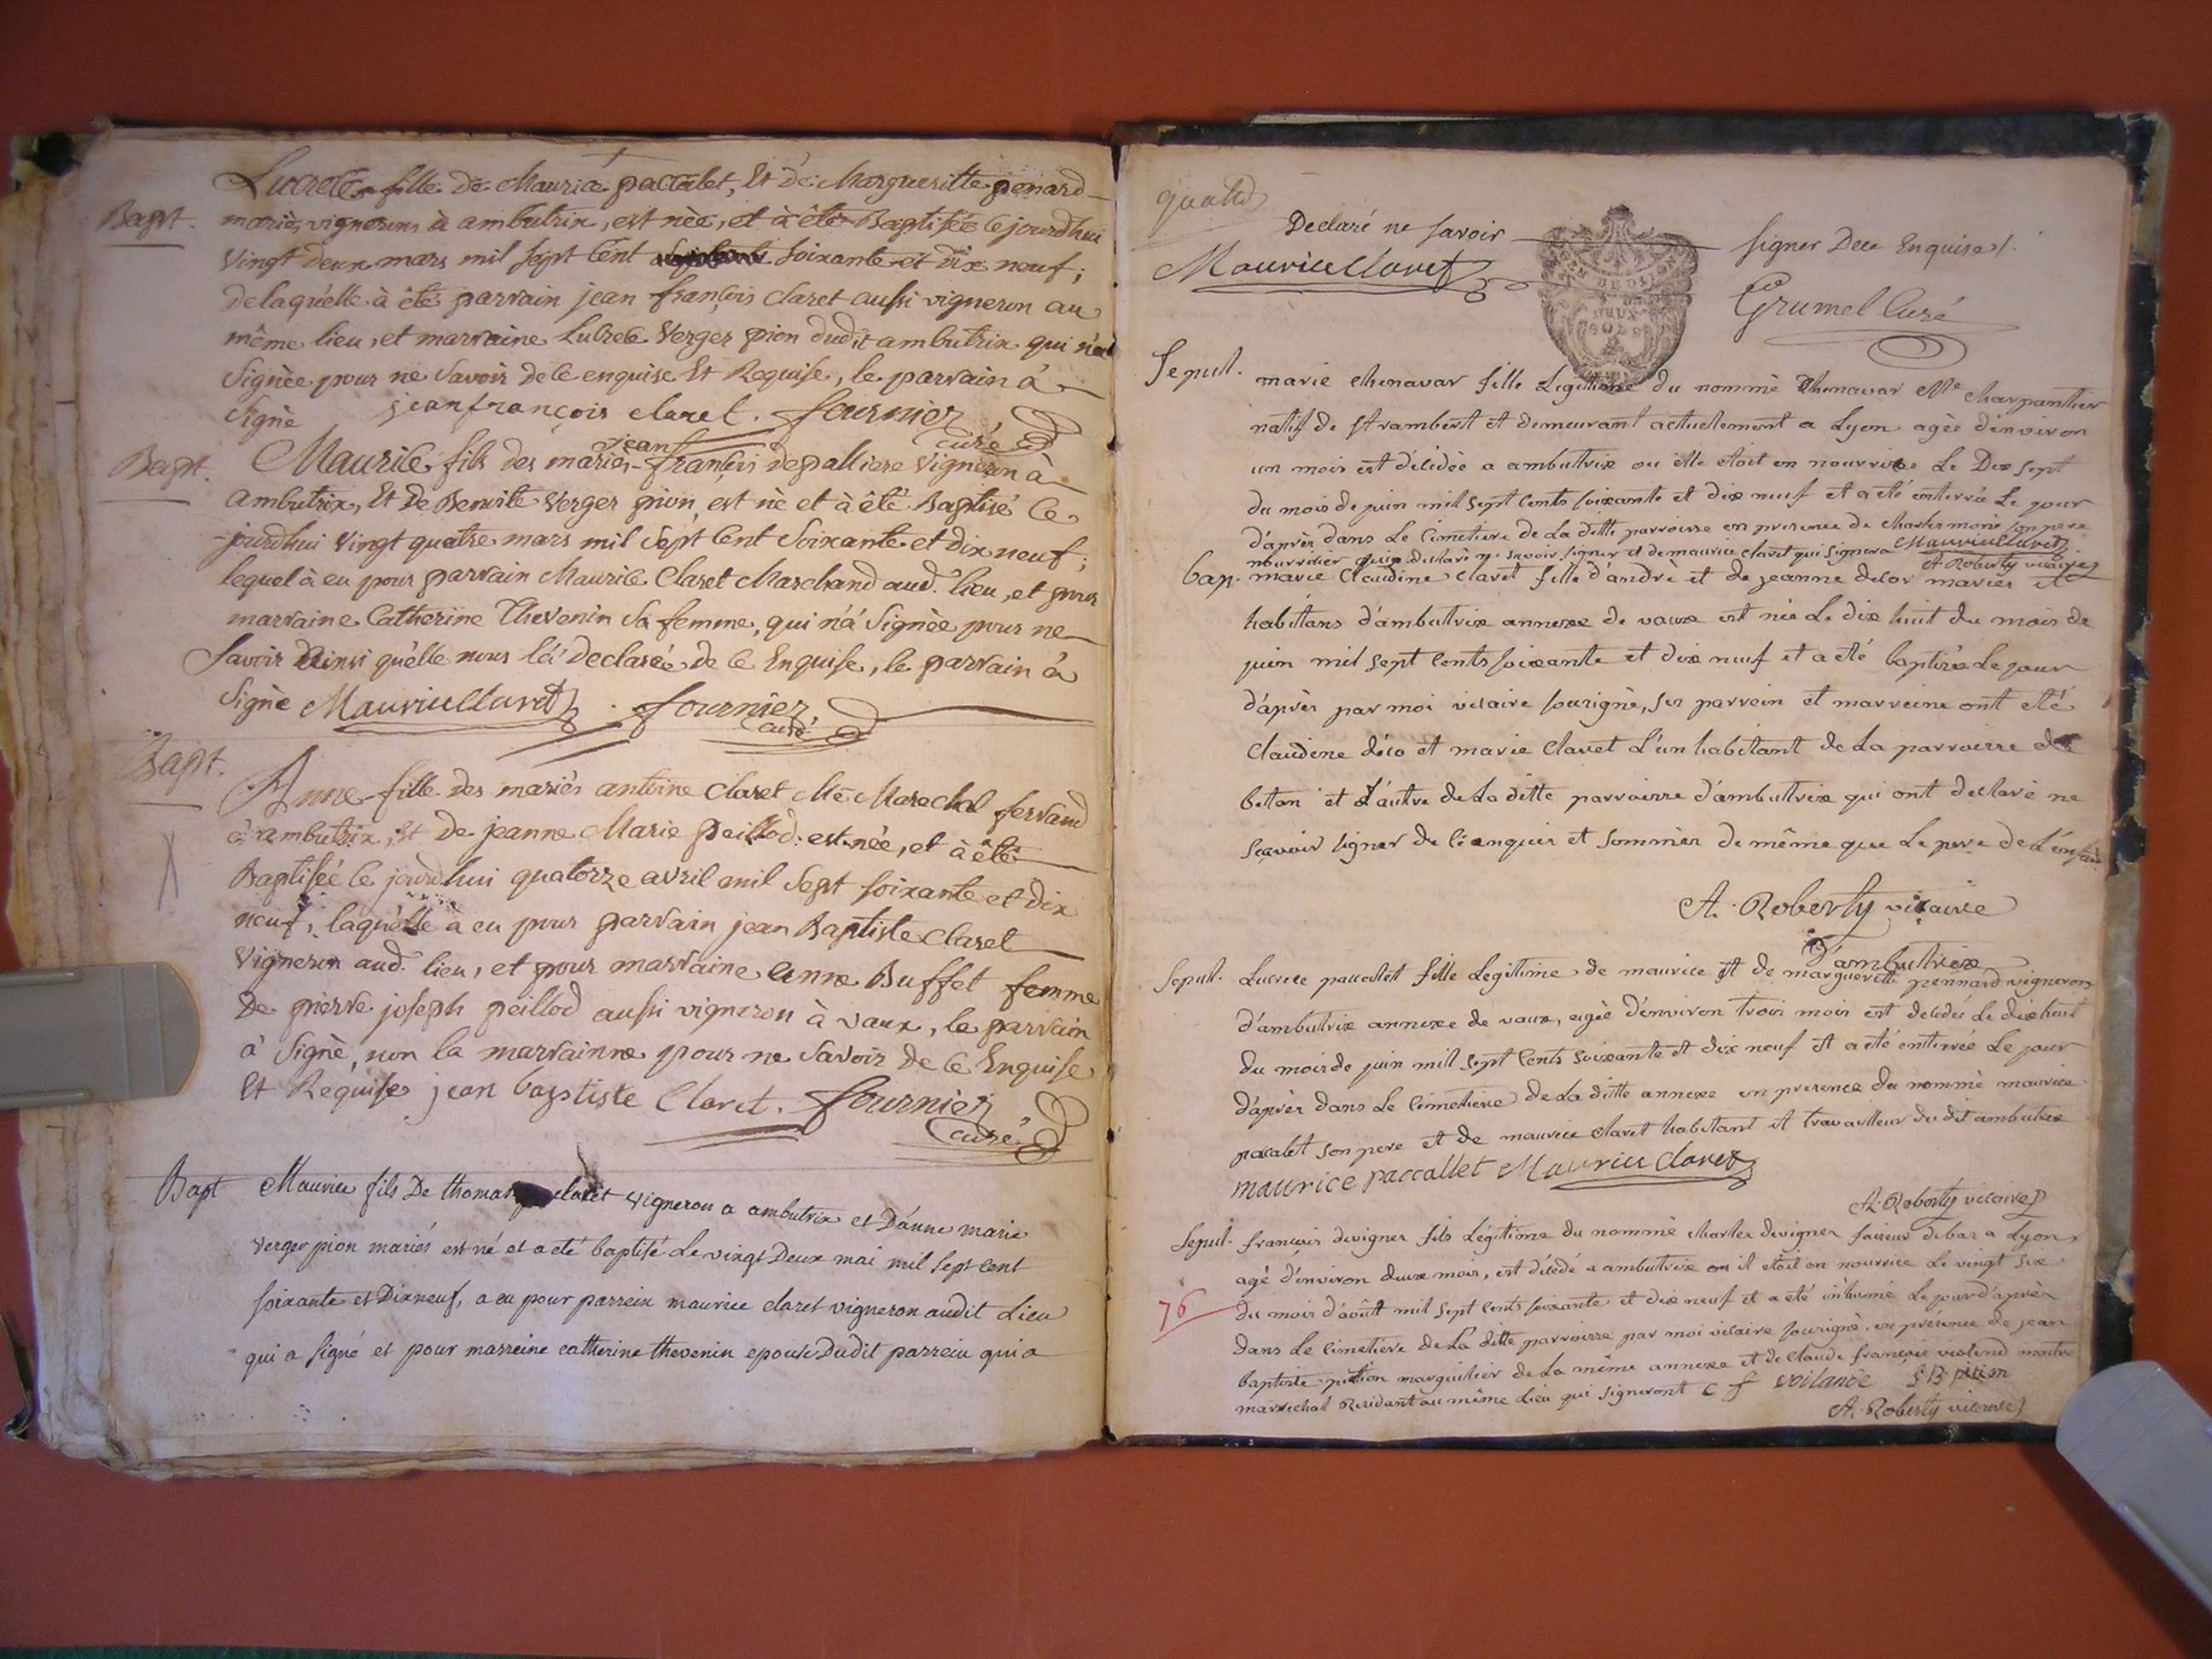 Lucrece fille de Maurice paccalet, Et de Margueritte penard
Bapt. mariés, vignerons à ambutrix, est née, et à été Baptisée ce jourdhui
Vingt deux mars mil sept Cent soixante et dix neuf;
de laquelle à été parvain jean françois Claret aussi vigneron au
même lieu, et marvaine Lucrece Verger pion dudit ambutrix qui n'a
Signèe pour ne Savoir de ce enquise Et Requise, le parvain à
Signè jean françois claret. fournier
curé
Bapt. Maurice fils des mariés jean françois depalliere Vigneron à
ambutrix, Et de Benoite Verger pion, est nè et à été Baptisé Ce
-jourdhui Vingt quatre mars mil Sept Cent Soixante et dix neuf;
lequel à eu pour parvain Maurice Claret Marchand aud. lieu, et pour
marvaine Catherine Thevenin Sa femme, qui n'a Signèe pour ne
Savoir Ainsi qu'elle nous l'a declarée de ce Enquise, le parvain à
Signè Maurice Claret. fournier
curé
Bapt.
Anne fille des mariés antoine Claret Me Marechal ferrand
à ambutrix, Et de jeanne Marie peillod. est née, et à été
Baptisée ce jourdhui quatorze avril mil Sept soixante et dix
neuf, laquelle à eu pour parvain jean Baptiste Claret
Vigneron aud. lieu, et pour marvaine Anne Buffet femme
De pierre joseph peillod aussi vigneron à vaux, le parvain
à Signè, non la marvainne pour ne Savoir de ce Enquise
Et Requise jean baptiste Claret. fournier
curé
Bapt Maurice fils De thomas claret vigneron a ambutrix et D'anne marie
verger pion mariés est né et a eté baptisé Le vingt Deux mai mil sept cent
soixante et Dixneuf, a eu pour parrein maurice claret vigneron audit Lieu
qui a signé et pour marreine catherine thevenin epouse Dudit parrein qui a
Declaré ne savoir signer Dece Enquise.
DEUX SOLS
Maurice Claret
Grumel Curé
Sepul. marie chenavar fille Legittime du nommé Chenavar Me charpantier
natif de st rambert et demeurant actuelement a Lyon agèe d'environ
un mois est dècèdèe a ambutrix ou elle etoit en nourrice Le Dix sept
du mois de juin mil sept cents soixante et dix neuf et a eté enterrée Le jour
d'après dans Le cimetiere de La ditte parroisse en presence de charles monin son pere
nourricier qui a declaré ne sçavoir signer et de maurice claret qui signera Maurice Claret
A. Roberty vicaire
bap. marie Claudine claret fille d'andrè et de jeanne decor mariés et
habitans d'ambutrix annexe de vaux est née Le dix huit du mois de
juin mil sept cents soixante et dix neuf et a eté baptisèe Le jour
d'après par moi vicaire sousigné, ses parrein et marreine ont eté
Claudine dèco et marie Claret L'un habitant de La parroisse de
beton et L'autre de La ditte parroisse d'ambutrix qui ont declaré ne
scavoir signer de ce enquis et sommés de même que Le pere de L'enfant
A. Roberty vicaire
D'ambutrix
Sepul. Lucrece paccallet fille Legitime de maurice et de margueritte pennard vignerons
d'ambutrix annexe de vaux, agèe d'environ trois mois est decedée Le dixhuit
du mois de juin mil sept cents soixante et dix neuf et a eté enterrée Le jour
d'après dans Le cimetiere de La ditte annexe en presence du nommè maurice
pacalet son pere et de maurice claret habitant et travailleur du dit ambutrix
maurice paccallet Maurice Claret
A. Roberty vicaire
sepul. françois devigner fils Légitime du nommè charles devigner faiseur de bas a Lyon
agé d'environ deux mois, est dècèdé a ambutrix ou il etoit en nourrice Le vingt six
76 du mois d'août mil sept cents soixante et dix neuf et a eté inhumé Le jour d'après
dans Le cimetiere de La ditte parroisse par moi vicaire sousignè, en présence de jean
baptiste pition marguilier de La même annexe et de claude françois violand maitre
marechal Residant au même Lieu qui signeront c f voilande J B pition
A. Roberty vicaire